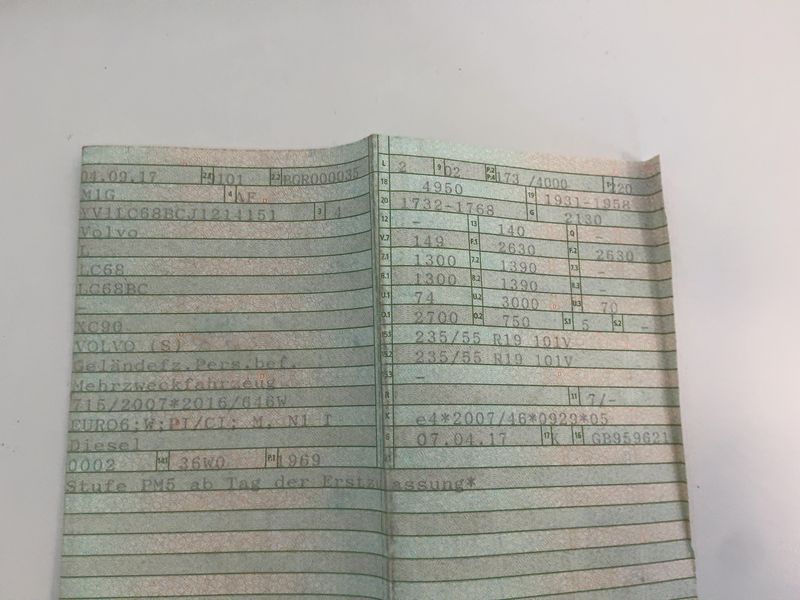 04.09.17 2.1 0101 2.2 BGR000035
M1G 4 AF
YV1LC68BCJ1214151 3 4
Volvo
L
LC68
LC68BC
XC90
VOLVO (S)
Geländefz.Pers.bef.
Mehrzweckfahrzeug
715/2007*2016/646W
EURO6;W;PI/CI; M, N1 I
Diesel
0002 14.1 36W0 P.1 1969
Stufe PM5 ab Tag der Erstzulassung*
L 2 9 02 P.2 P.4 173 /4000 T 220
18 4950 19 1931-1958
20 1732-1768 G 2130
12 - 13 140 Q -
V.7 149 F.1 2630 F.2 2630
7.1 1300 7.2 1390 7.3 -
8.1 1300 8.2 1390 8.3 -
U.1 74 U.2 3000 U.3 70
O.1 2700 O.2 750 S.1 5 S.2 -
15.1 235/55 R19 101V
15.2 235/55 R19 101V
15.3 -
R 11 7/-
K e4*2007/46*0929*05
6 07.04.17 17 K 16 GB959621
21